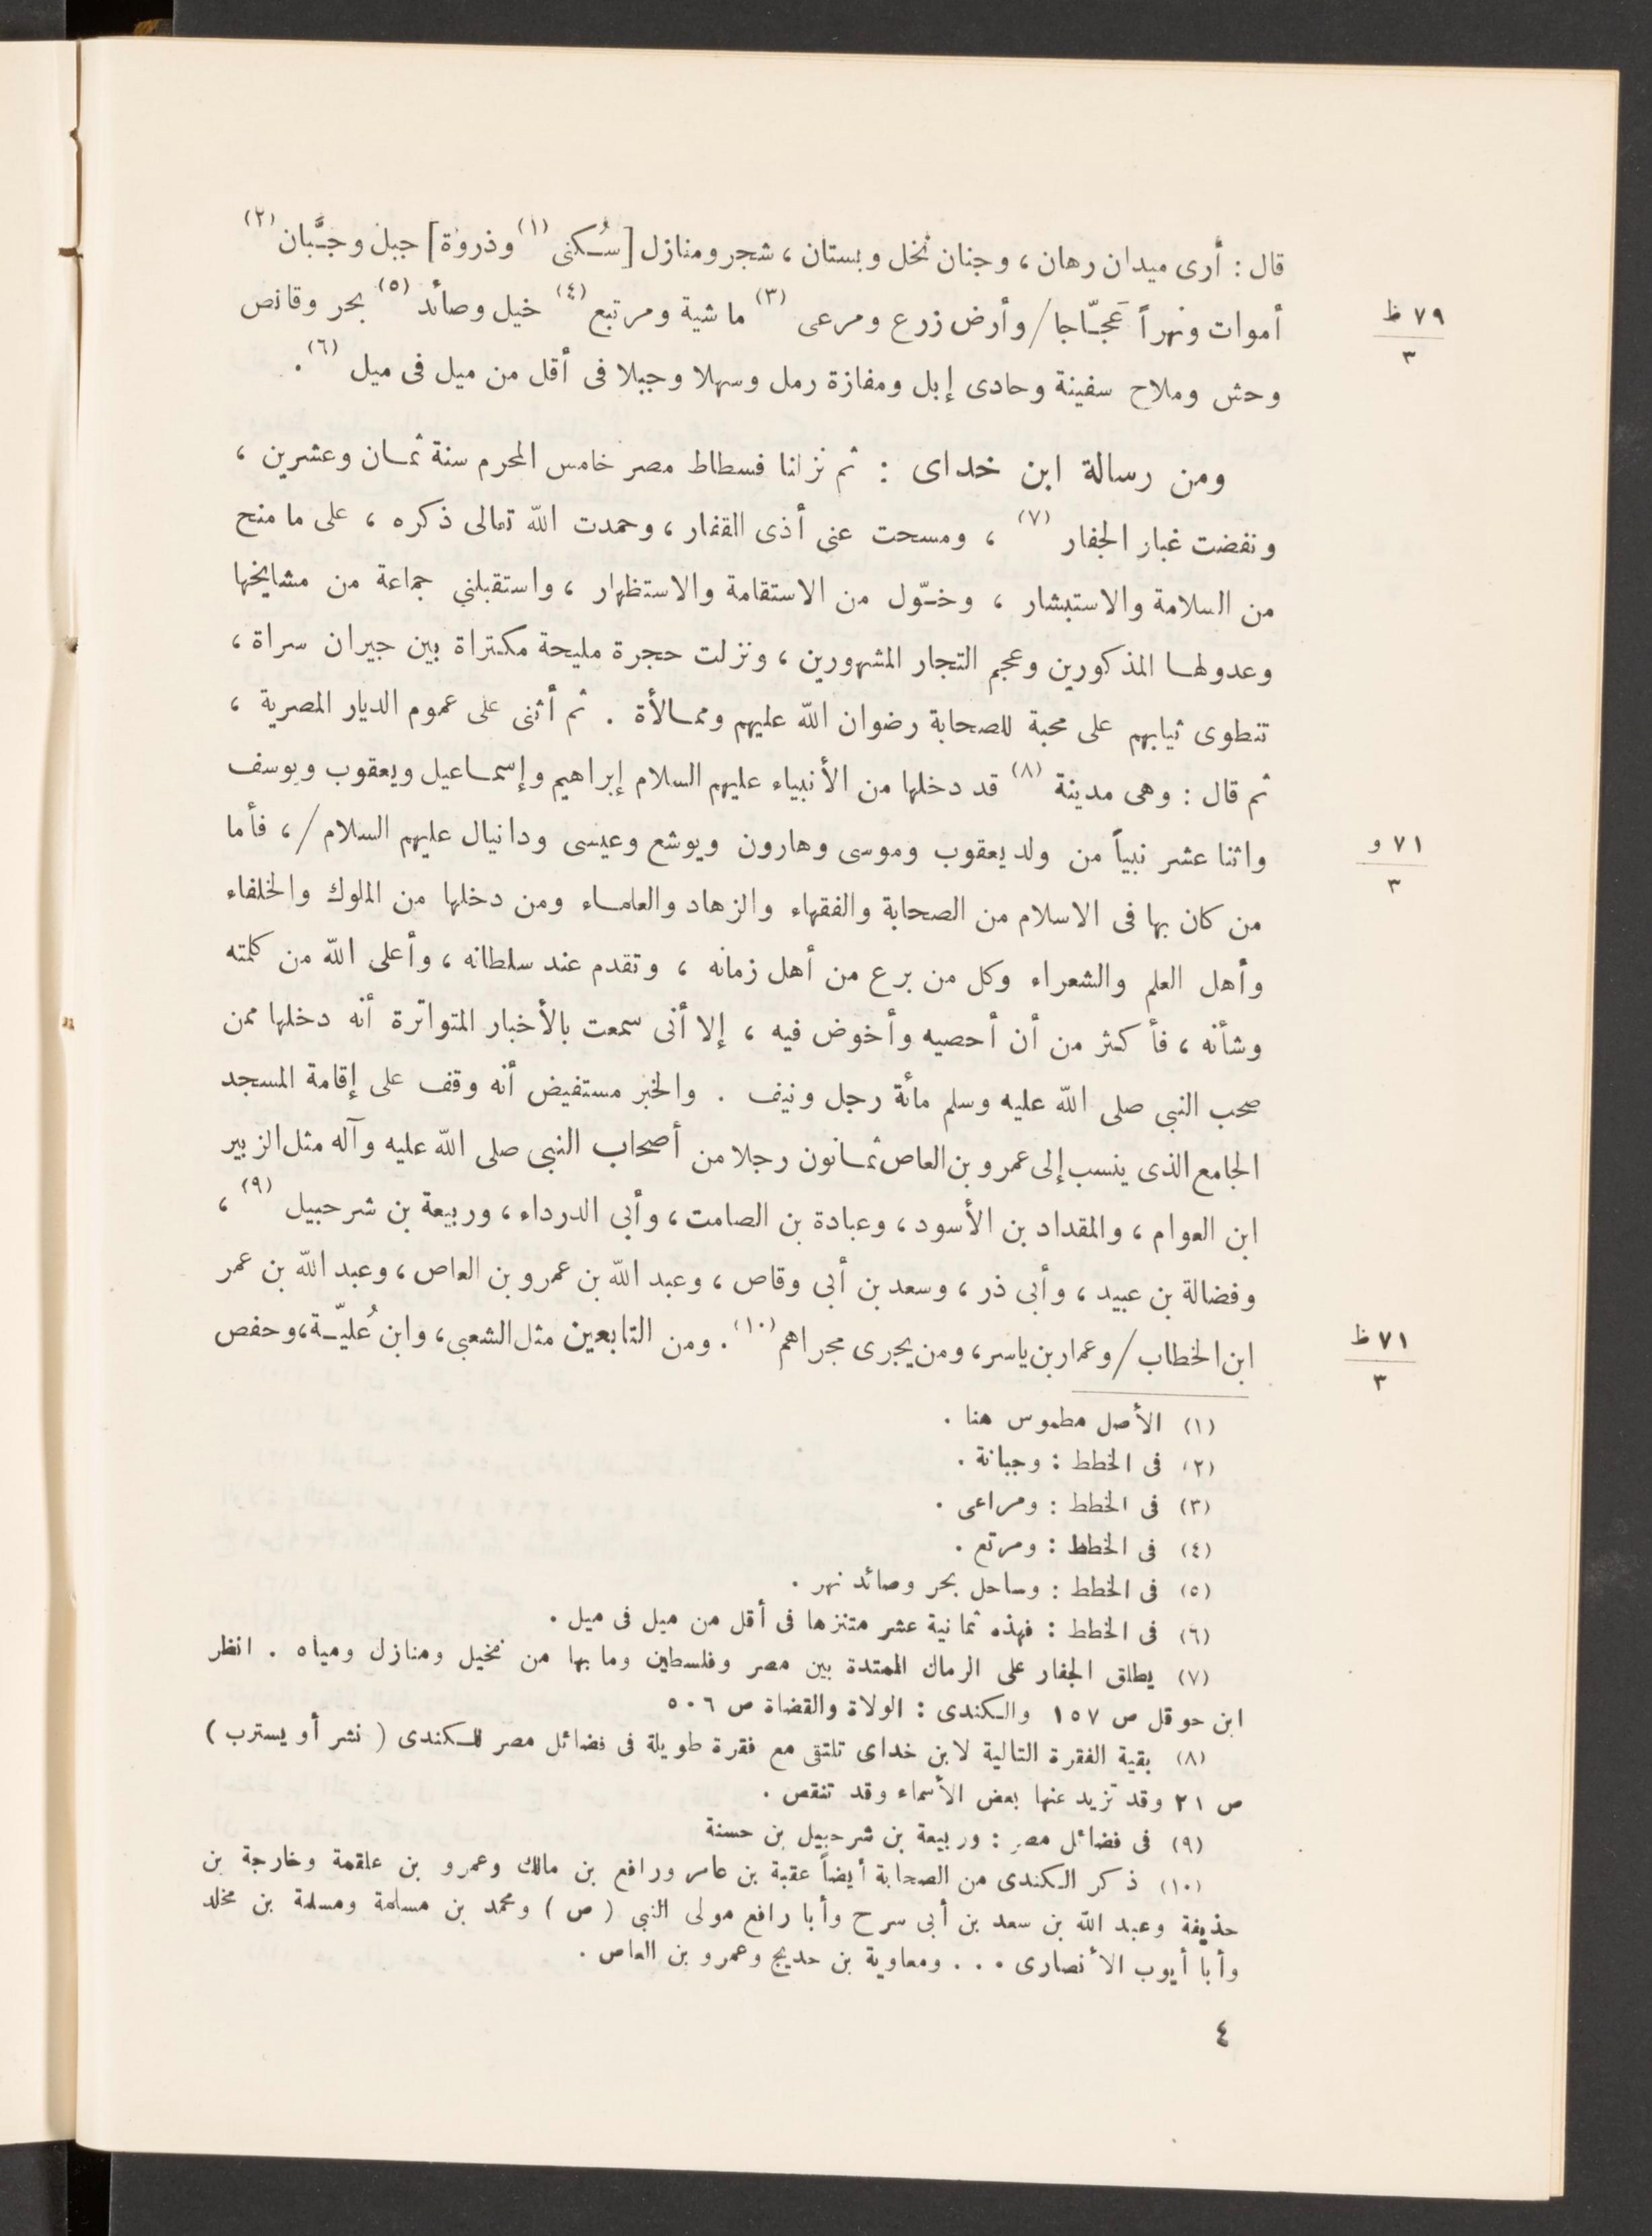 قال : أرى ميدان رهان ، وجنان نخل وبستان ، شجر ومنازل [سُكنى (١) وذروة] جبل وجبَّان (٢)
أموات ونهراً عَجّاجا / وأرض زرع ومرعى (٣) ماشية ومرتبع (٤) خيل وصائد (٥) بحر وقانص
٧٩ ظ
٣
وحش وملاح سفينة وحادى إبل ومفازة رمل وسهلا وجبلا فى أقل من ميل فى ميل (٦) .
ومن رسالة ابن خداى : ثم نزلنا فسطاط مصر خامس المحرم سنة ثمان وعشرين ،
ونفضت غبار الجفار (٧) ، ومسحت عنى أذى القفار ، وحمدت الله تعالى ذكره ، على ما منح
من السلامة والاستبشار ، وخوّل من الاستقامة والاستظهار ، واستقبلني جماعة من مشايخها
وعدولها المذكورين وعجم التجار المشهورين ، ونزلت حجرة مليحة مكتراة بين جيران سراة ،
تنطوى ثيابهم على محبة للصحابة رضوان الله عليهم وممالأة . ثم أثنى على عموم الديار المصرية ،
ثم قال : وهى مدينة (٨) قد دخلها من الأنبياء عليهم السلام إبراهيم وإسماعيل ويعقوب ويوسف
واثنا عشر نبياً من ولد يعقوب وموسى وهارون ويوشع وعيسى ودانيال عليهم السلام / ، فأما
٧١ و
٣
من كان بها فى الاسلام من الصحابة والفقهاء والزهاد والعلماء ومن دخلها من الملوك والخلفاء
وأهل العلم والشعراء وكل من برع من أهل زمانه ، وتقدم عند سلطانه ، وأعلى الله من كلمته
وشأنه ، فأكثر من أن أحصيه وأخوض فيه ، إلا أنى سمعت بالأخبار المتواترة أنه دخلها ممن
صحب النبى صلى الله عليه وسلم مائة رجل ونيف . والخبر مستفيض أنه وقف على إقامة المسجد
الجامع الذى ينسب إلى عمرو بن العاص ثمانون رجلا من أصحاب النبى صلى الله عليه وآله مثل الزبير
ابن العوام ، والمقداد بن الأسود ، وعبادة بن الصامت ، وأبى الدرداء ، وربيعة بن شرحبيل (٩) ،
وفضالة بن عبيد ، وأبى ذر ، وسعد بن أبى وقاص ، وعبد الله بن عمرو بن العاص ، وعبد الله بن عمر
ابن الخطاب / وعمار بن ياسر ، ومن يجرى مجراهم (١٠) . ومن التابعين مثل الشعبي ، وابن عُليّة ، وحفص
٧١ ظ
٣
(١) الأصل مطموس هنا .
(٢) فى الخطط : وجبانة .
(٣) فى الخطط : ومراعى .
(٤) فى الخطط : ومرتع .
(٥) فى الخطط : وساحل بحر وصائد نهر .
(٦) فى الخطط : فهذه ثمانية عشر متنزها فى أقل من ميل فى ميل .
(٧) يطلق الجفار على الرمال الممتدة بين مصر وفلسطين وما بها من نخيل ومنازل ومياه . انظر
ابن حوقل ص ١٥٧ والكندى : الولاة والقضاة ص ٥٠٦
(٨) بقية الفقرة التالية لابن خداى تلتقى مع فقرة طويلة فى فضائل مصر للكندى ( نشر أويسترب )
ص ٢١ وقد تزيد عنها بعض الأسماء وقد تنقص .
(٩) فى فضائل مصر : وربيعة بن شرحبيل بن حسنة
(١٠) ذكر الكندى من الصحابة أيضاً عقبة بن عامر ورافع بن مالك وعمرو بن علقمة وخارجة بن
حذيفة وعبد الله بن سعد بن أبى سرح وأبا رافع مولى النبى ( ص ) ومحمد بن مسلمة ومسلمة بن مخلد
وأبا أيوب الأنصارى . . . ومعاوية بن حديج وعمرو بن العاص .
٤